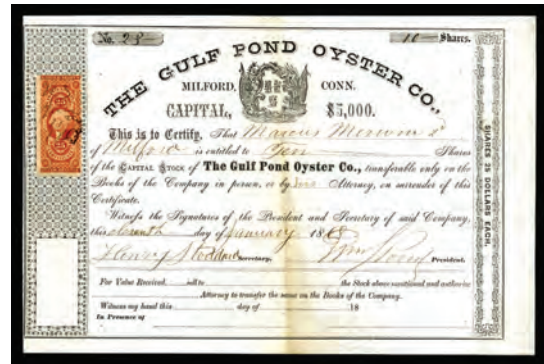 No. 28
10 Shares.
THE GULF POND OYSTER CO.,
MILFORD, CONN.
CAPITAL, $5,000.
This is to Certify, That Marcus Merwin
of Milford is entitled to Ten Shares
of the CAPITAL STOCK of The Gulf Pond Oyster Co., transferable only on the
Books of the Company in person, or by his Attorney, on surrender of this
Certificate.
Witness the Signatures of the President and Secretary of said Company,
this eleventh day of January 1868
Henry Stoddard Secretary, President.
For Value Received, sell to the Stock above mentioned and authorize
Attorney to transfer the same on the Books of the Company.
Witness my hand this day of 18
In Presence of
SHARES 25 DOLLARS EACH.
25